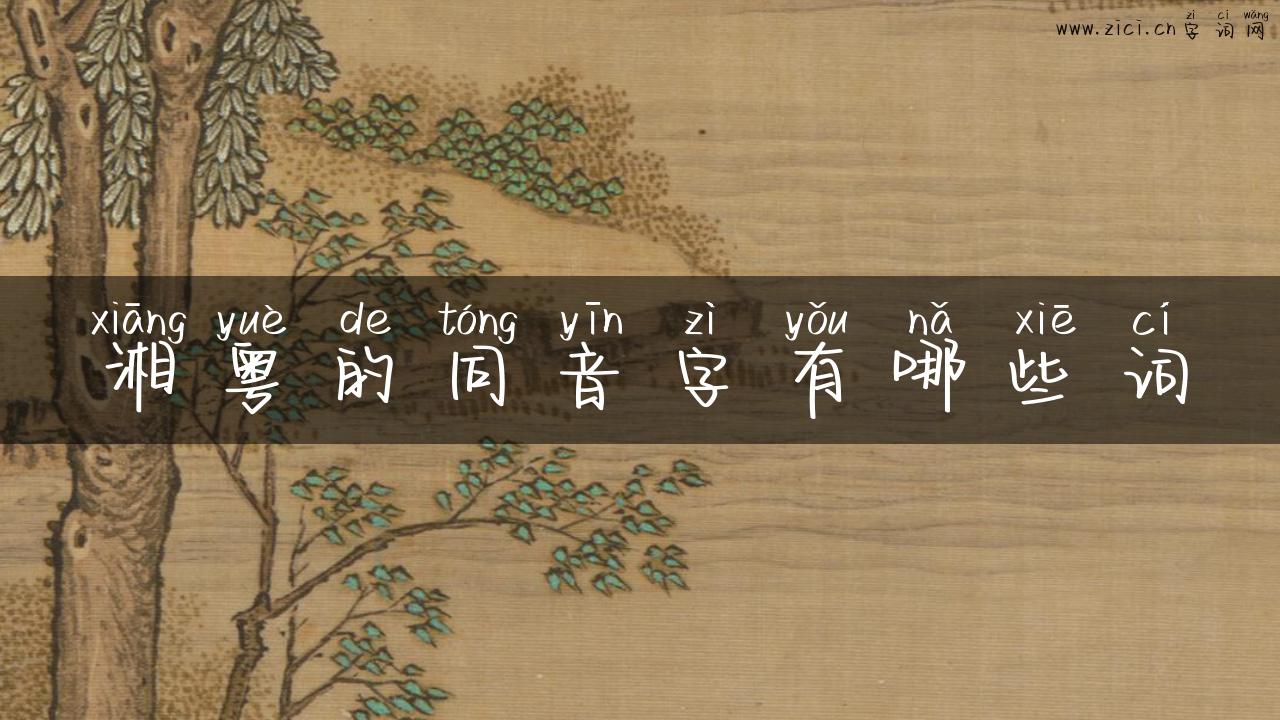 zì cí wǎng
www.zici.cn 字词网
xiāng yuè de tóng yīn zì yǒu nǎ xiē cí
湘粤的同音字有哪些词